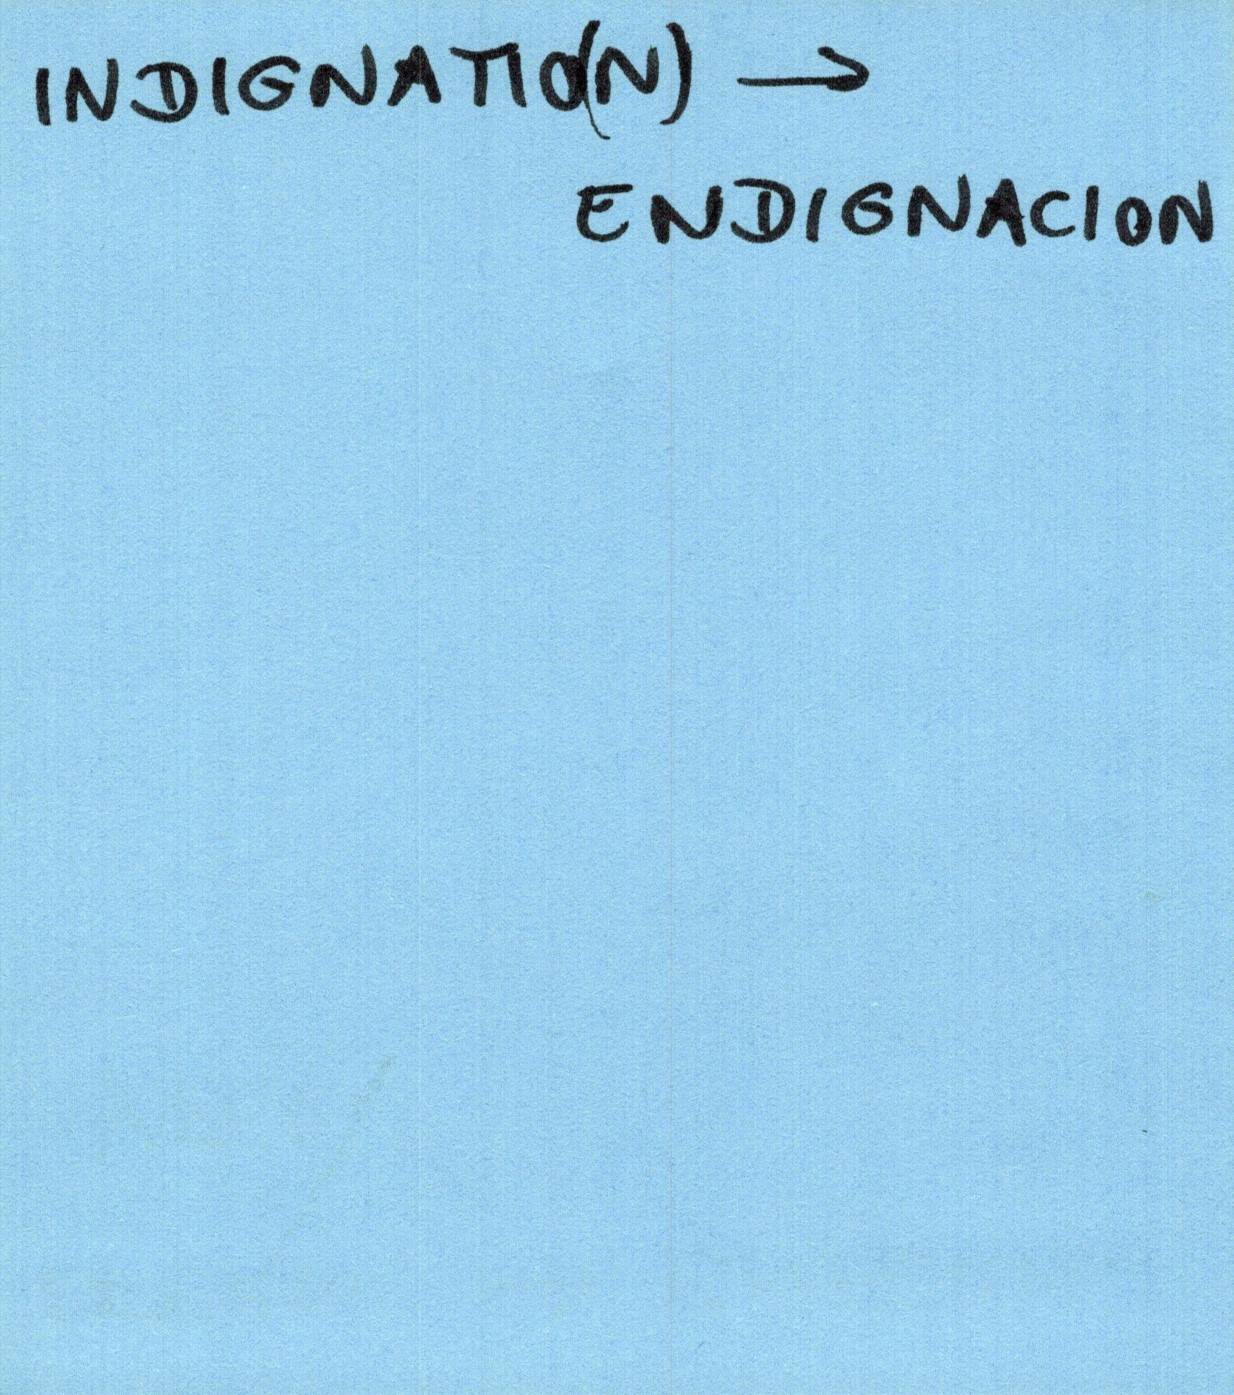 INDIGNATIO(N) →
ENDIGNACION